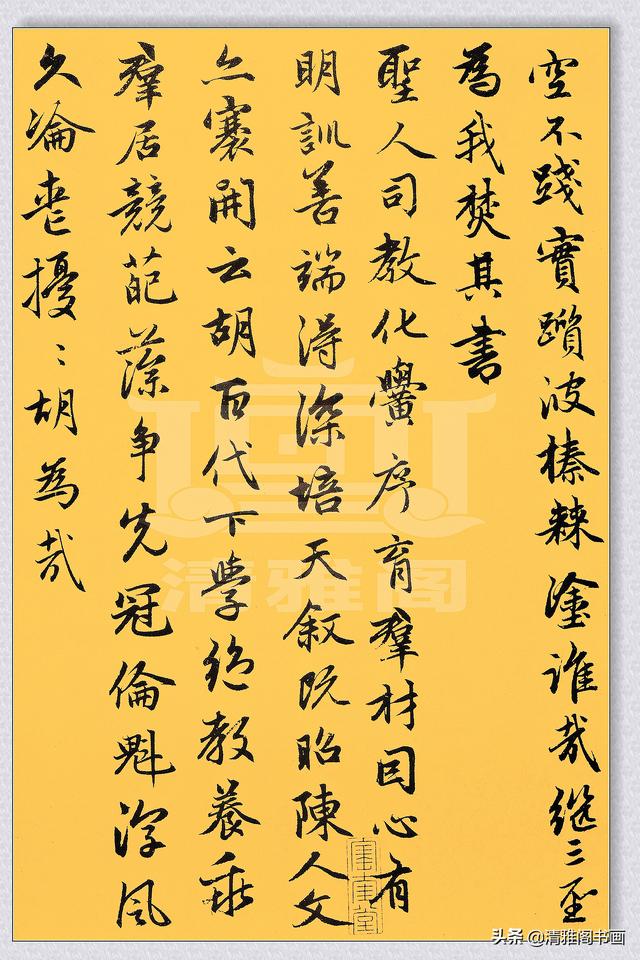 空不踐實躓彼榛棘塗誰哉继三聖
為我焚其書
聖人司教化黌序育羣材因心有
明訓善端得深培天叙既昭陳人文
亦褰開云胡百代下學絕教養乖
羣居競葩藻争先冠倫魁淳風
久淪喪擾〻胡為哉
清雅阁
头条 @清雅阁书画